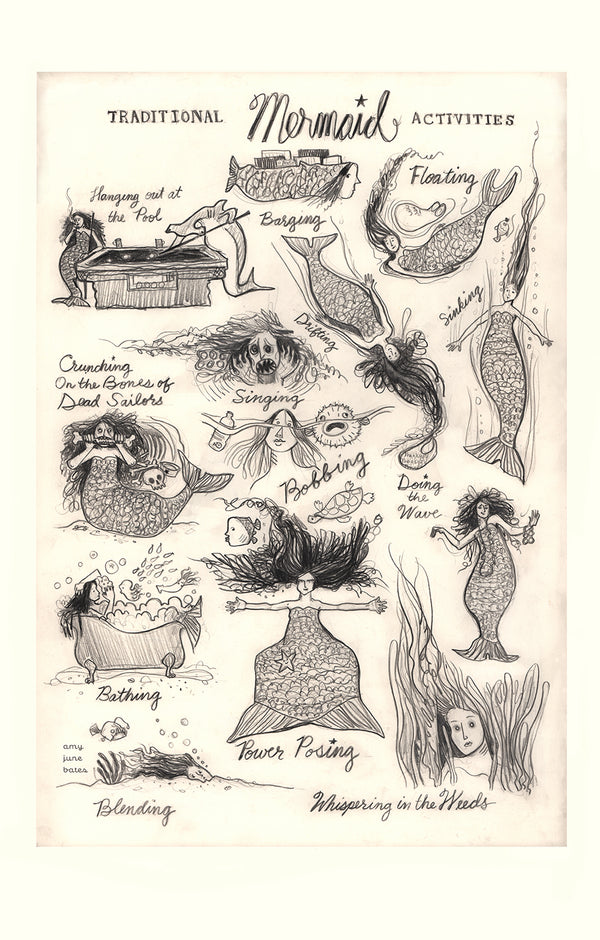 TRADITIONAL Mermaid ACTIVITIES
Hanging out at
the Pool
Barging
Floating
Sinking
Drifting
Crunching
On the Bones of
Dead Sailors
Singing
Bobbing
Doing
the
Wave
Bathing
Power Posing
amy
june
bates
Blending
Whispering in the Weeds